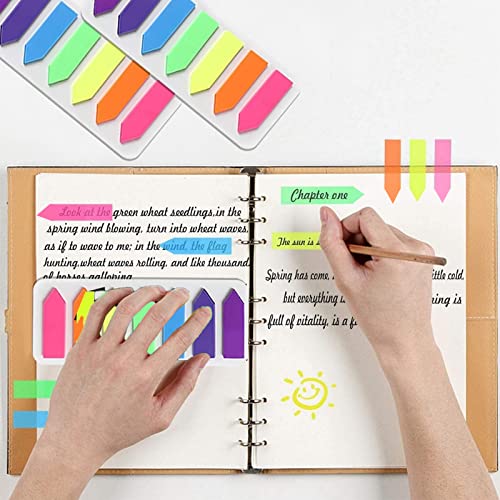 Look at the green wheat seedlings,in the
spring wind blowing, turn into wheat waves,
as if to wave to me; in the wind, the flag
hunting,wheat waves rolling, and like thousand
of horses galloping
Chapter one
The sun is s
Spring has come, little cold,
but everything ing is
full of vitality, is a f